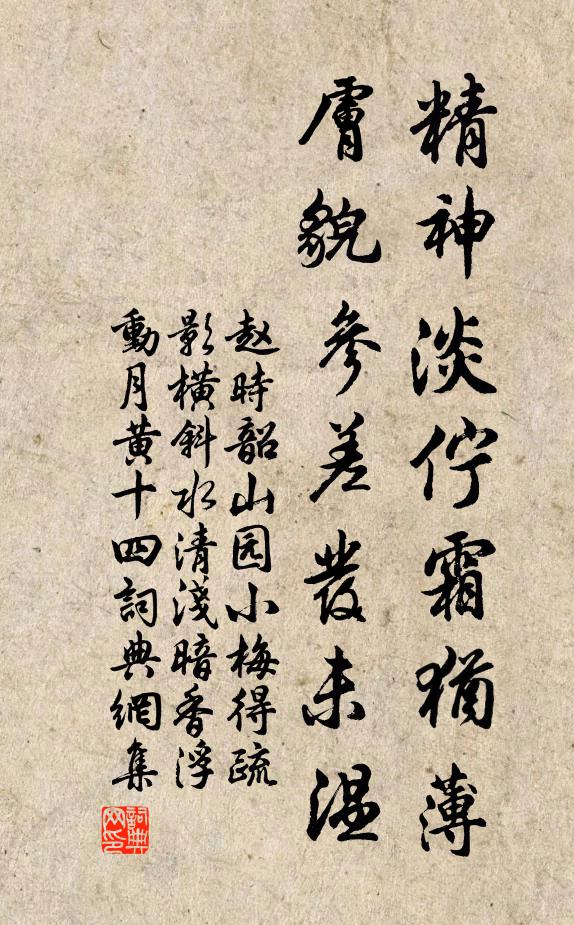 精神淡佇霜猶薄
膚貌參差發未温
赵時韶山园小梅得疏
影橫斜水清淺暗香浮
動月黄十四詞典網集
詞典网印